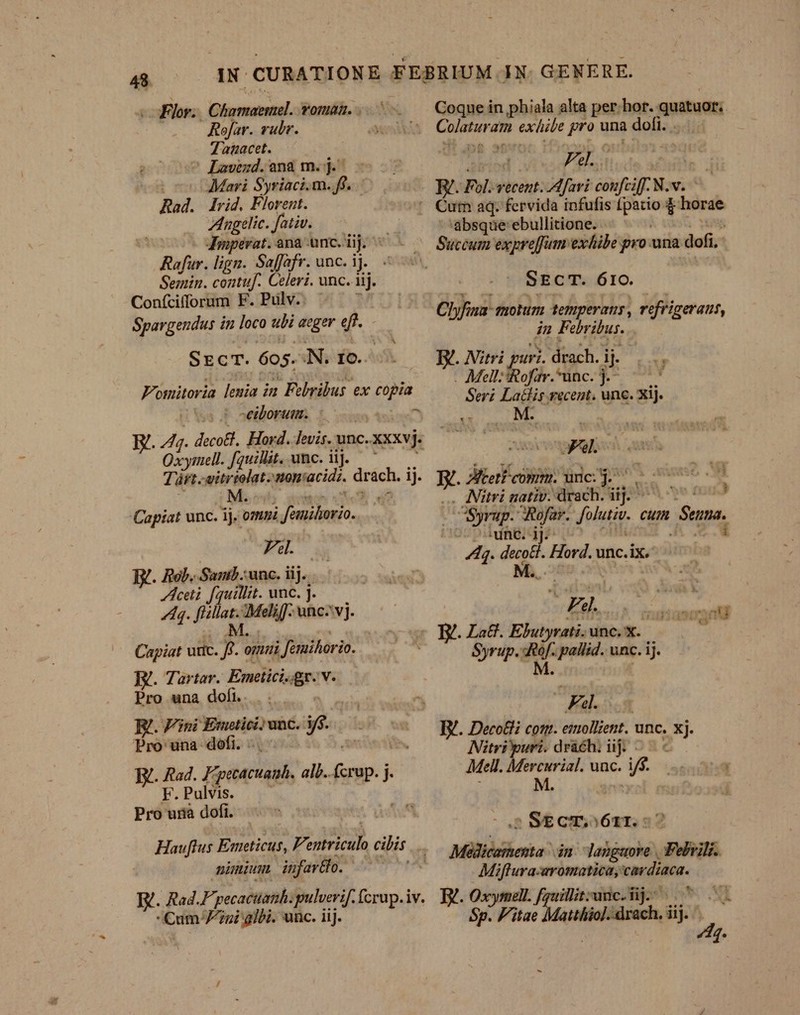 48 IN CURATIONE FEBRIUM IN GENERE.
Flor. Chamaemel. roman.
Roſar. rubr.
Tanacet.
Lavend. ana m. j.
Mari Syriaci. m. ſs.
Rad. Irid. Florent.
Angelic. ſativ.
Imperat. ana unc. iij.
Raſur. lign. Saſſafr. unc. ij.
Semin. contuſ. Celeri. unc. iij.
Conſciſſorum F. Pulv.
Spargendus in loco ubi aeger eſt.
SECT. 605. N. 10.
Vomitoria lenia in Febribus ex copia
ciborum.
℞. Aq. decoct. Hord. levis. unc. xxxvj.
Oxymell. ſquillit. unc. iij.
Tart. vitriolat. non acidi. drach. ij.
M.
Capiat unc. ij. omni ſemihorio.
Vel.
℞. Rob. Samb. unc. iij.
Aceti ſquillit. unc. j.
Aq. ſtillat. Meliſſ. unc. vj.
M.
Capiat unc. ſs. omni ſemihorio.
℞. Tartar. Emetici. gr. v.
Pro una doſi.
℞. Vini Emetici unc. iſs.
Pro una doſi.
℞. Rad. Ypecacuanh. alb. ſcrup. j.
F. Pulvis.
Pro una doſi.
Hauſtus Emeticus, Ventriculo cibis
nimium infarcto.
℞. Rad. Ypecacuanh. pulveriſ. ſcrup. iv.
Cum Vini albi. unc. iij.
Coque in phiala alta per hor. quatuor.
Colaturam exhibe pro una doſi.
Vel.
℞. Fol. recent. Aſari conſciſſ. N. v.
Cum aq. fervida infuſis ſpatio ½ horae
absque ebullitione.
Succum expreſſum exhibe pro una doſi.
SECT. 610.
Clyſma motum temperans, refrigerans,
in Febribus.
℞. Nitri puri. drach. ij.
Mell. Roſar. unc. j.
Seri Lactis recent. unc. xij.
M.
Vel.
℞. Aceti comm. unc. j.
Nitri nativ. drach. iij.
Syrup. Roſar. ſolutiv. cum Senna.
unc. ij.
Aq. decoct. Hord. unc. ix.
M.
Vel.
℞. Lact. Ebutyrati. unc. x.
Syrup. Roſ. pallid. unc. ij.
M.
Vel.
℞. Decocti com. emollient. unc. xj.
Nitri puri. drach. iij.
Mell. Mercurial. unc. iſs.
M.
SECT. 611.
Medicamenta in languore Febrili.
Miſtura aromatica, cardiaca.
℞. Oxymell. ſquillit. unc. iij.
Sp. Vitae Matthiol. drach. iij.
Aq.